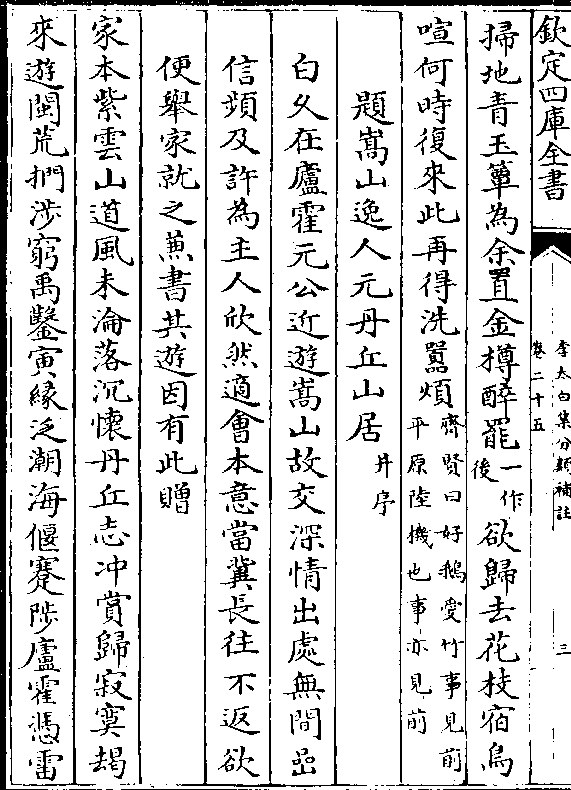 欽定四庫全書
李太白集分類補註
卷二十五
三
掃地青玉簟為余置金樽醉罷一作後欲歸去花枝宿鳥
喧何時復來此再得洗囂煩齊賢曰好鵝愛竹事見前平原陸機也事亦見前
題嵩山逸人元丹丘山居并序
白久在廬霍元公近遊嵩山故交深情出處無間嵒
信頻及許為主人欣然適會本意當冀長往不返欲
便舉家就之兼書共遊因有此贈
家本紫雲山道風未淪落沉懷丹丘志冲賞歸寂寞朅
來遊閩荒捫涉窮禹鑿寅緣泛潮海偃蹇陟廬霍憑雷